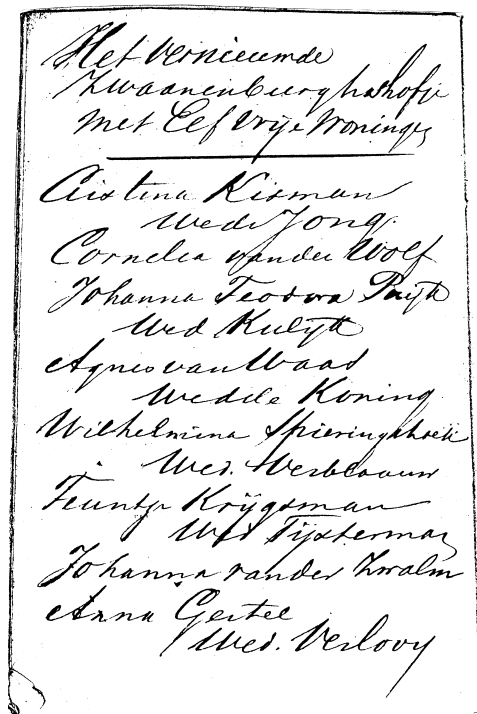 Het Vernieuwde
Zwaanenburghshofje
met Elf Vrije Woningen
Cristina Kisman
Wed. Jong.
Cornelia van der Wolf
Johanna Teodora
Wed Kulijk
Agnes van Waas
Wed de Koning
Wilhelmina Spieringshoek
Wed. Verblaauw
Teuntje Krijgsman
Wed Tijsterman
Johanna van der Zwalm
Anna Gestel
Wed. Verlooy